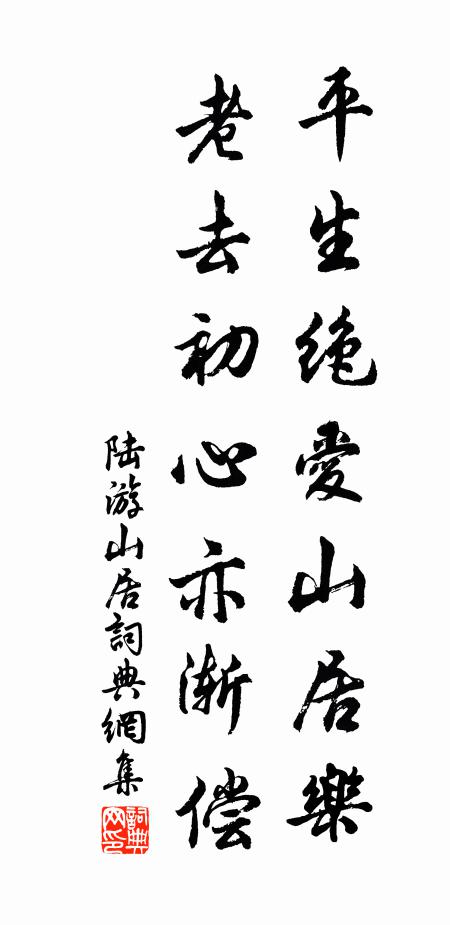 平生絶愛山居樂
老去初心亦漸偿
陆游山居詞典網集
詞典网印